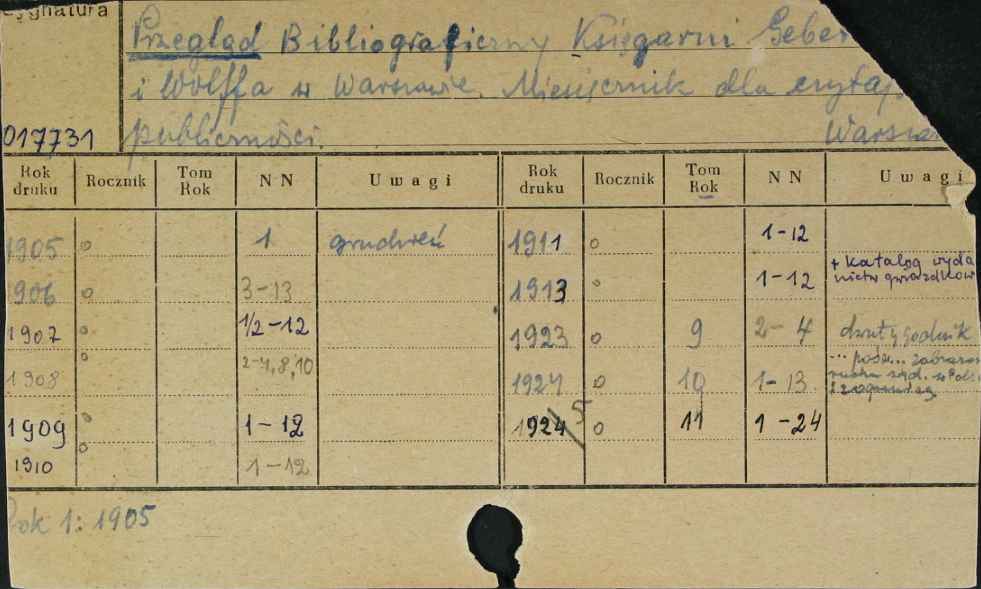 Sygnatura
Przegląd Bibliograficzny Księgarni Geber
i Wolffa w Warszawie. Miesięcznik dla czytaj
publiczności. Warsza
017731
Rok druku Rocznik Tom Rok NN Uwagi Rok druku Rocznik Tom Rok NN Uwagi
1905 o 1 grudzień 1911 o 1-12
1906 o 3-13 1913 o 1-12 + Katalog wyda
nictw gwiazdkow
1907 o 1/2-12 1923 o 9 2-4 dwutygodnik
1908 o 2-4,8,10 1924 o 10 1-13 ... podz...
ruchu wyd. w Pols
i zagranicą
1909 o 1-12 1924/5 o 11 1-24
1910 o 1-12
Rok 1: 1905